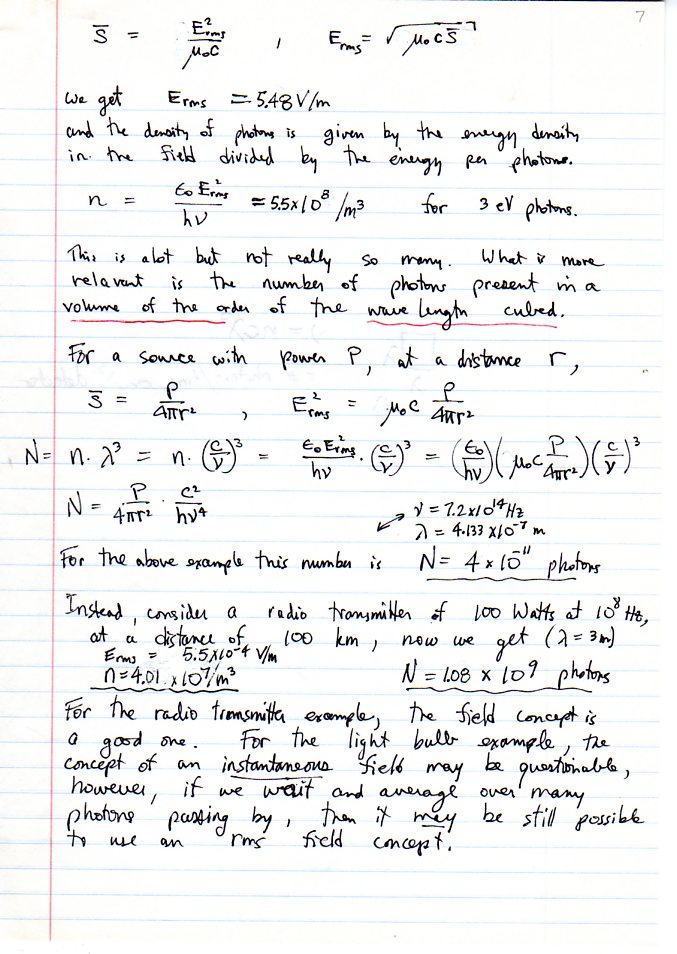 7
S̅ = E²rms / μ₀c , Erms = √(μ₀ c S̅)
We get Erms = 5.48 V/m
and the density of photons is given by the energy density
in the field divided by the energy per photons.
n = ϵ₀ E²rms / hν = 5.5x10⁸ /m³ for 3 eV photons.
This is alot but not really so many. What is more
relavant is the number of photons present in a
volume of the order of the wave length cubed.
For a source with power P, at a distance r,
S̅ = P / 4πr² , E²rms = μ₀c P / 4πr²
N = n·λ³ = n·(c/ν)³ = ϵ₀E²rms / hν · (c/ν)³ = (ϵ₀/hν)(μ₀c P/4πr²)(c/ν)³
N = P / 4πr² · c² / hν⁴
ν = 7.2x10¹⁴ Hz
λ = 4.133 x10⁻⁷ m
For the above example this number is N = 4 x 10⁻¹¹ photons
Instead, consider a radio transmitter of 100 Watts at 10⁸ Hz,
at a distance of 100 km, now we get (λ = 3m)
Erms = 5.5x10⁻⁴ V/m
n = 4.01 x10⁷/m³ N = 1.08 x 10⁹ photons
For the radio transmitter example, the field concept is
a good one. For the light bulb example, the
concept of an instantaneous field may be questionable,
however, if we wait and average over many
photons passing by, then it may be still possible
to use an rms field concept.